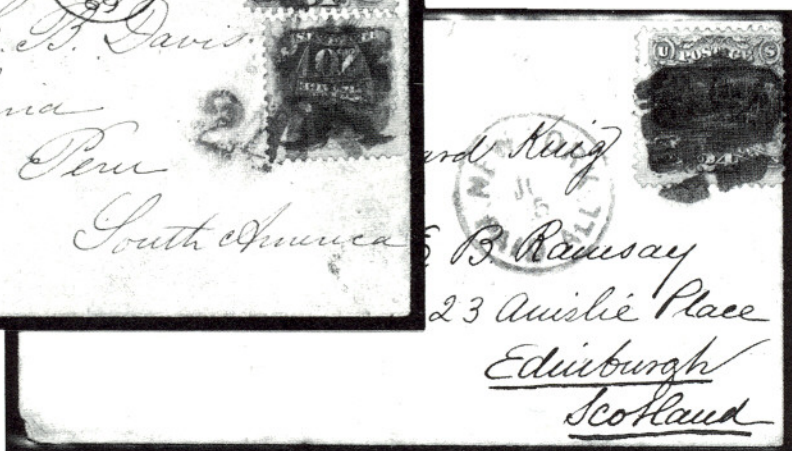 B. Davis
Peru
South America
10
2
U POSTAGE S
NEW
PAID ALL
King
E B. Ramsay
23 Ainslie Place
Edinburgh
Scotland